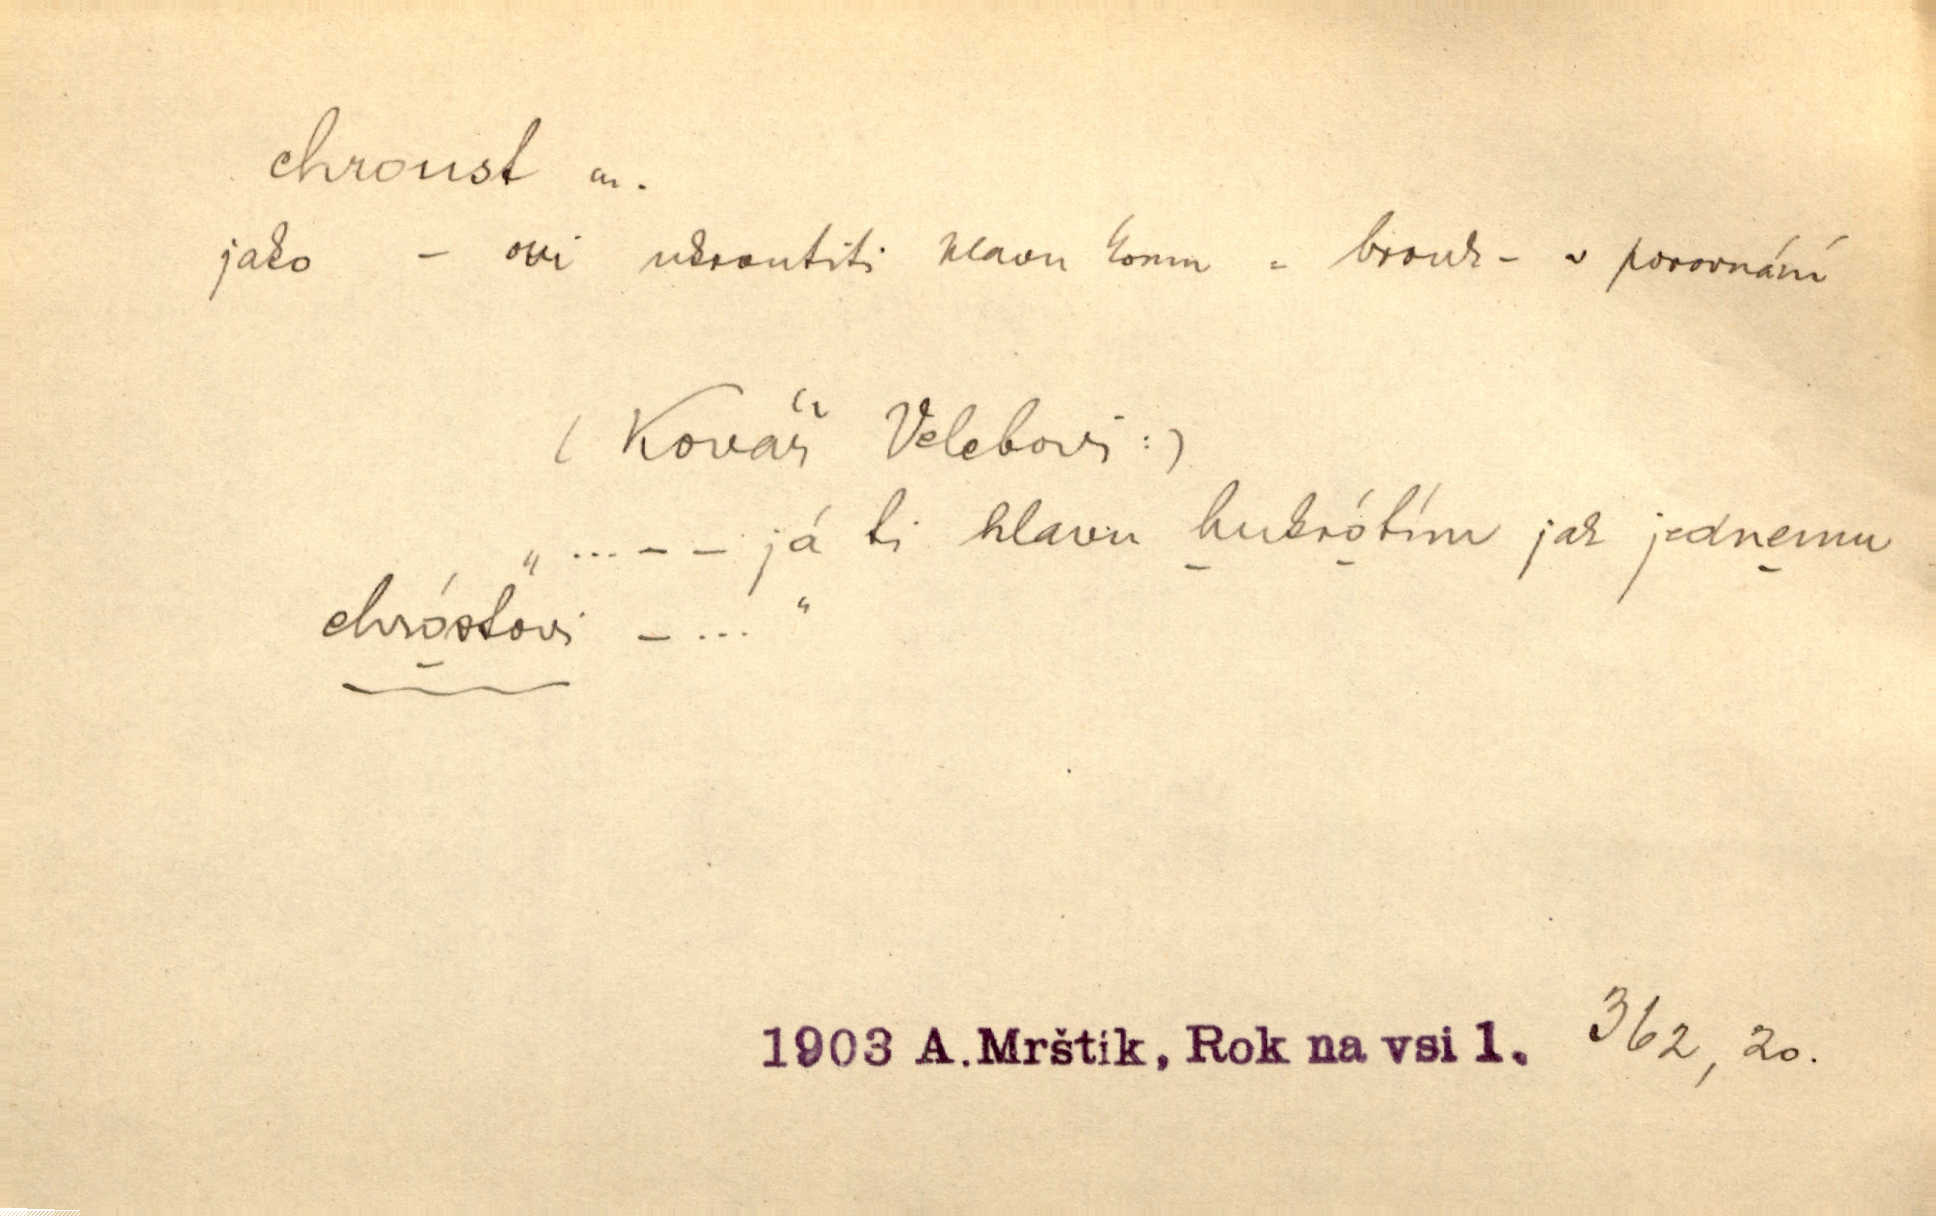 chroust m.
jako – ovi ukroutiti hlavu komu = brouk – v porovnání
( Kovář Velebovi :)
„ ... – – já ti hlavu hukrótím jak jednemu
chróstovi – ... “
1903 A.Mrštík, Rok na vsi 1. 362, 20.